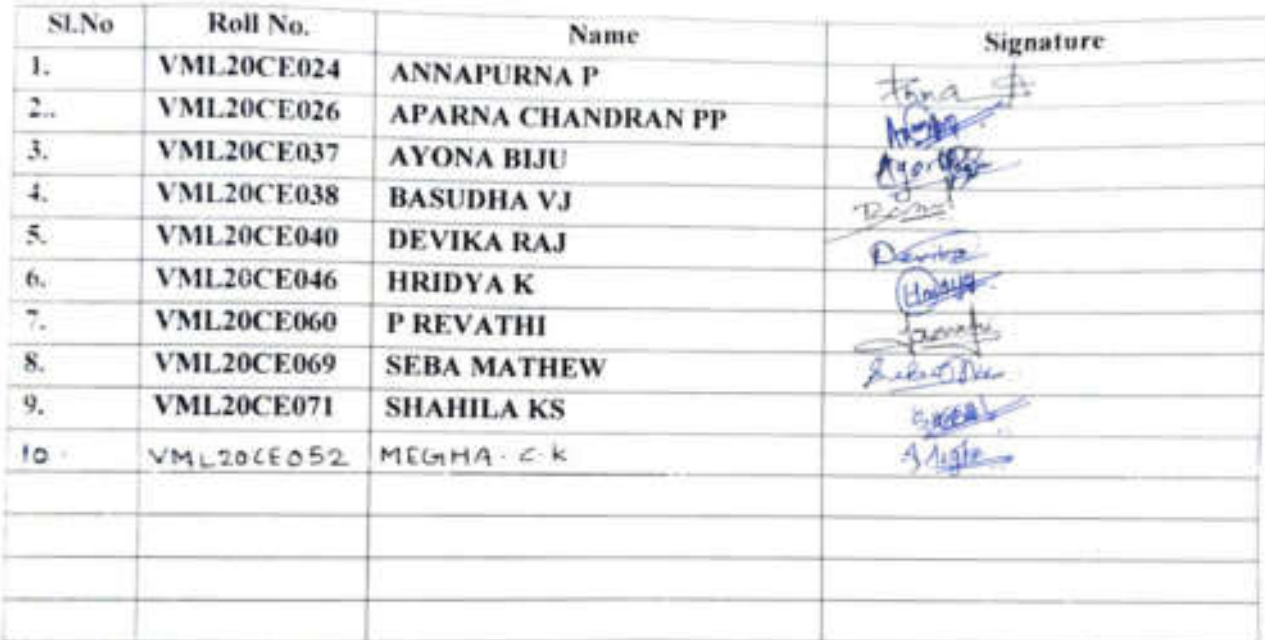 Sl.No Roll No. Name Signature
1. VML20CE024 ANNAPURNA P
2.. VML20CE026 APARNA CHANDRAN PP
3. VML20CE037 AYONA BIJU
4. VML20CE038 BASUDHA VJ
5. VML20CE040 DEVIKA RAJ Devika
6. VML20CE046 HRIDYA K
7. VML20CE060 P REVATHI
8. VML20CE069 SEBA MATHEW
9. VML20CE071 SHAHILA KS
10. VML20CE052 MEGHA. C. K